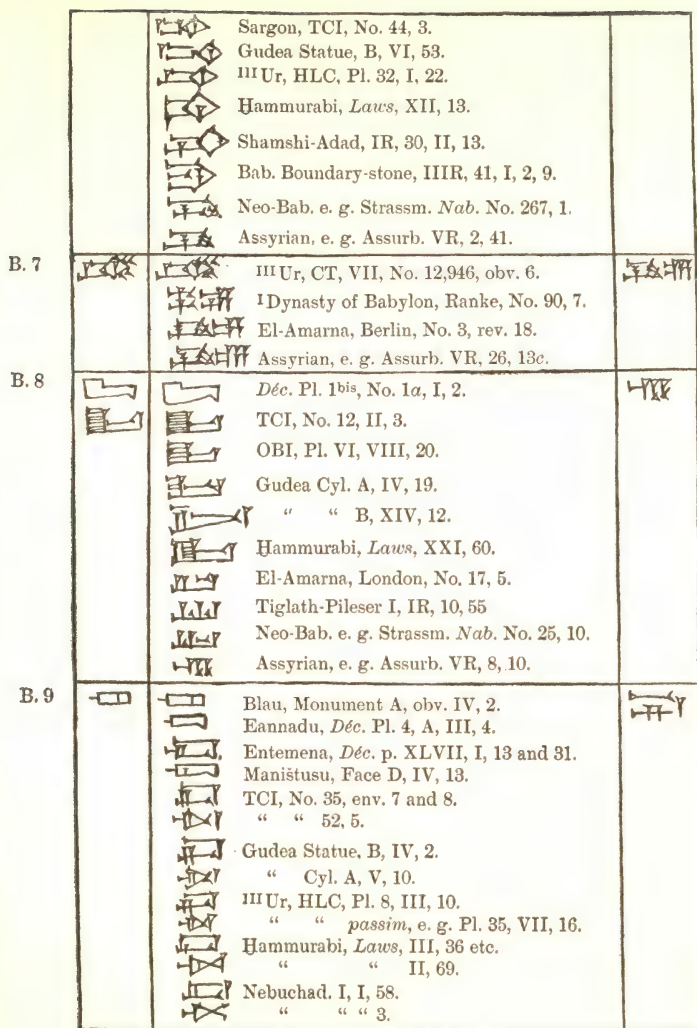 Sargon, TCI, No. 44, 3.
Gudea Statue, B, VI, 53.
III Ur, HLC, Pl. 32, I, 22.
Ḫammurabi, Laws, XII, 13.
Shamshi-Adad, IR, 30, II, 13.
Bab. Boundary-stone, IIIR, 41, I, 2, 9.
Neo-Bab. e. g. Strassm. Nab. No. 267, 1.
Assyrian, e. g. Assurb. VR, 2, 41.
B. 7 III Ur, CT, VII, No. 12,946, obv. 6.
I Dynasty of Babylon, Ranke, No. 90, 7.
El-Amarna, Berlin, No. 3, rev. 18.
Assyrian, e. g. Assurb. VR, 26, 13c.
B. 8 Déc. Pl. 1bis, No. 1a, I, 2.
TCI, No. 12, II, 3.
OBI, Pl. VI, VIII, 20.
Gudea Cyl. A, IV, 19.
“ “ B, XIV, 12.
Ḫammurabi, Laws, XXI, 60.
El-Amarna, London, No. 17, 5.
Tiglath-Pileser I, IR, 10, 55
Neo-Bab. e. g. Strassm. Nab. No. 25, 10.
Assyrian, e. g. Assurb. VR, 8, 10.
B. 9 Blau, Monument A, obv. IV, 2.
Eannadu, Déc. Pl. 4, A, III, 4.
Entemena, Déc. p. XLVII, I, 13 and 31.
Maništusu, Face D, IV, 13.
TCI, No. 35, env. 7 and 8.
“ “ 52, 5.
Gudea Statue, B, IV, 2.
“ Cyl. A, V, 10.
III Ur, HLC, Pl. 8, III, 10.
“ “ passim, e. g. Pl. 35, VII, 16.
Ḫammurabi, Laws, III, 36 etc.
“ “ II, 69.
Nebuchad. I, I, 58.
“ “ “ 3.